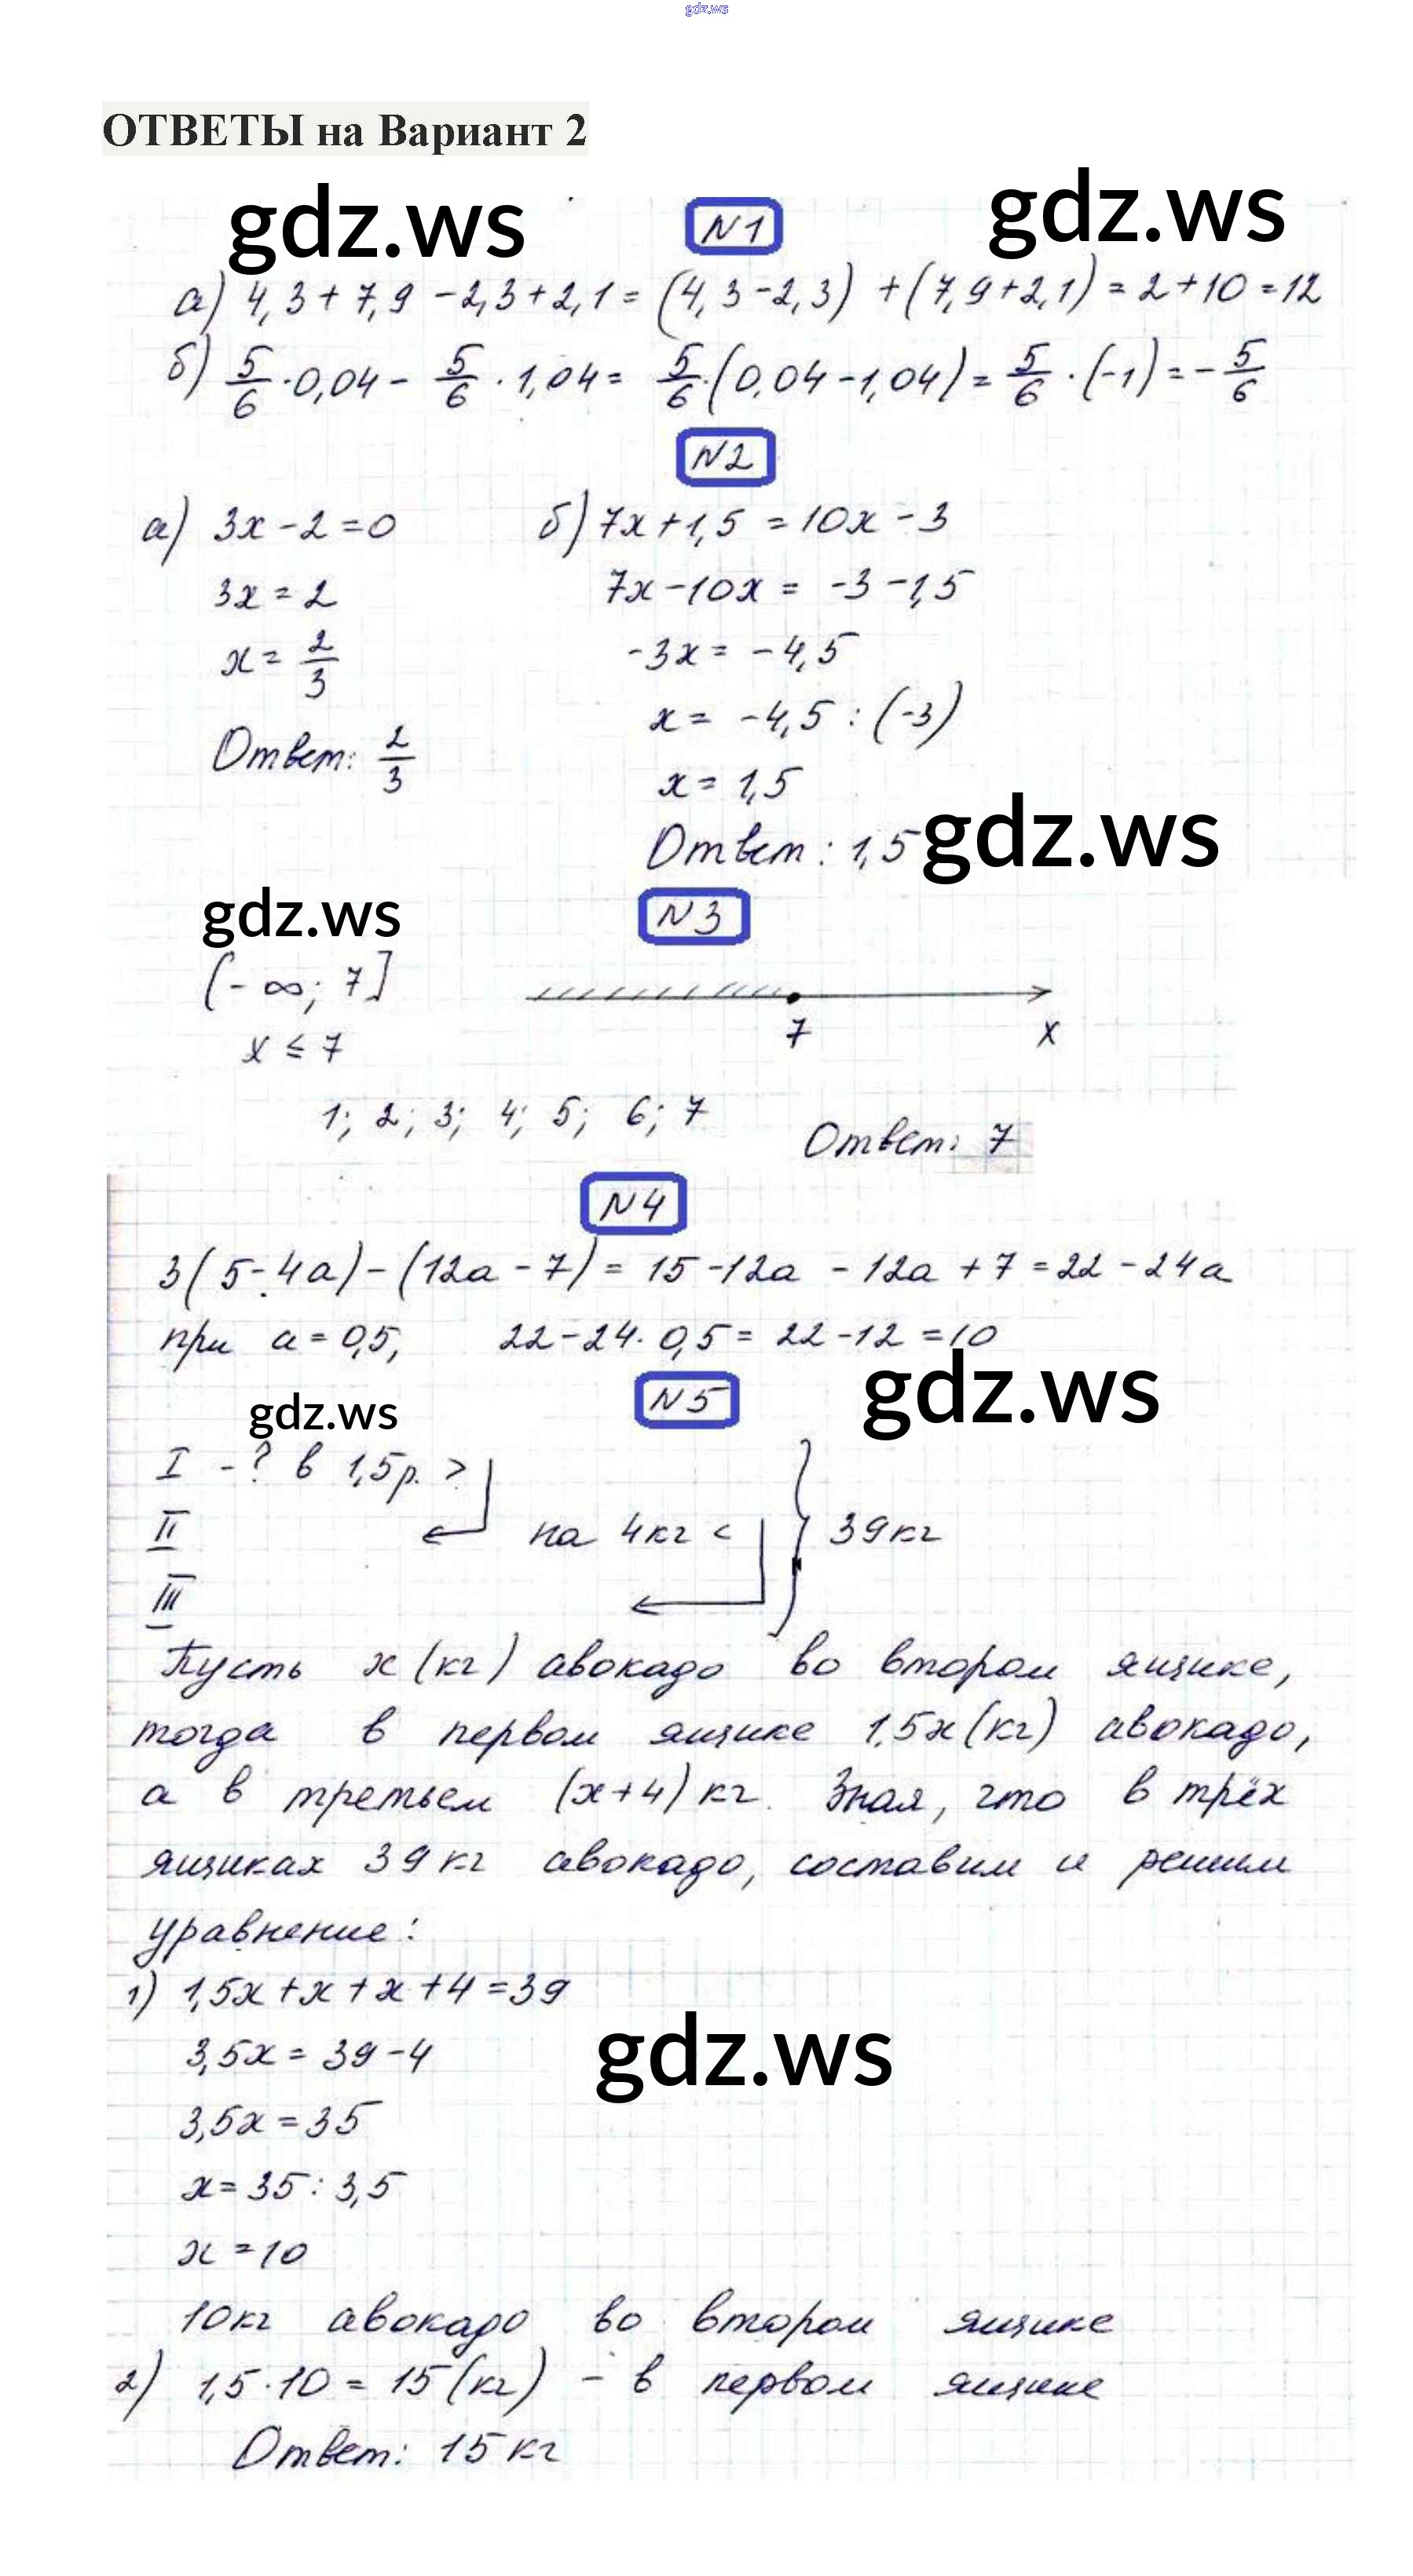 gdz.ws
ОТВЕТЫ на Вариант 2
gdz.ws
gdz.ws
N1
а) 4,3 + 7,9 - 2,3 + 2,1 = (4,3 - 2,3) + (7,9 + 2,1) = 2 + 10 = 12
б) 5/6 · 0,04 - 5/6 · 1,04 = 5/6 · (0,04 - 1,04) = 5/6 · (-1) = - 5/6
N2
а) 3x - 2 = 0
3x = 2
x = 2/3
Ответ: 2/3
б) 7x + 1,5 = 10x - 3
7x - 10x = -3 - 1,5
-3x = -4,5
x = -4,5 : (-3)
x = 1,5
Ответ: 1,5
gdz.ws
gdz.ws
N3
(-∞; 7]
7 x
x ≤ 7
1; 2; 3; 4; 5; 6; 7
Ответ: 7
N4
3(5 - 4a) - (12a - 7) = 15 - 12a - 12a + 7 = 22 - 24a
при a = 0,5, 22 - 24 · 0,5 = 22 - 12 = 10
gdz.ws
gdz.ws
N5
I - ? в 1,5 р. >
II на 4кг < 39кг
III
Пусть x (кг) авокадо во втором ящике,
тогда в первом ящике 1,5x (кг) авокадо,
а в третьем (x + 4) кг. Зная, что в трёх
ящиках 39 кг авокадо, составим и решим
уравнение:
1) 1,5x + x + x + 4 = 39
3,5x = 39 - 4
3,5x = 35
x = 35 : 3,5
x = 10
gdz.ws
10кг авокадо во втором ящике
2) 1,5 · 10 = 15 (кг) - в первом ящике
Ответ: 15 кг